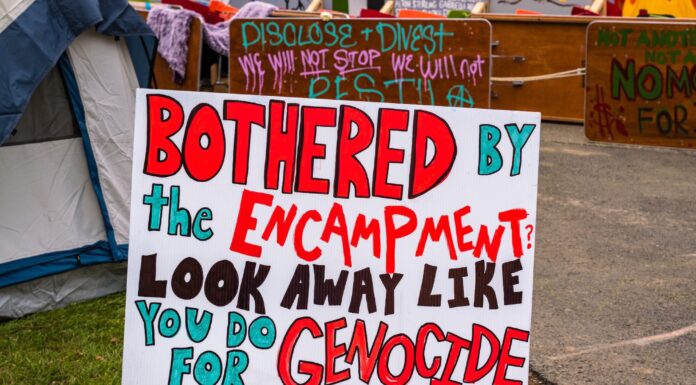 DISCLOSE + DIVEST
WE WILL NOT STOP WE WILL not
REST!!
NOT ANOT
NOT A
NOM
FOR
BOTHERED BY
the ENCAMPMENT?
LOOK AWAY LIKE
YOU DO
FOR GENOCIDE